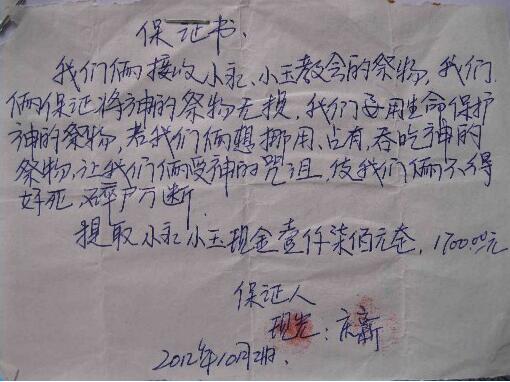 保证书、
我们俩接收小永、小玉教会的祭物,我们
俩保证将神的祭物无损,我们要用生命保护
神的祭物,若我们俩想挪用、占有、吞吃神的
祭物,让我们俩受神的咒诅,使我们俩不得
好死,碎尸万断.
提取小永小玉现金壹仟柒佰元夲,1700.00元
保证人
现光:庆新
2012年10月2日.